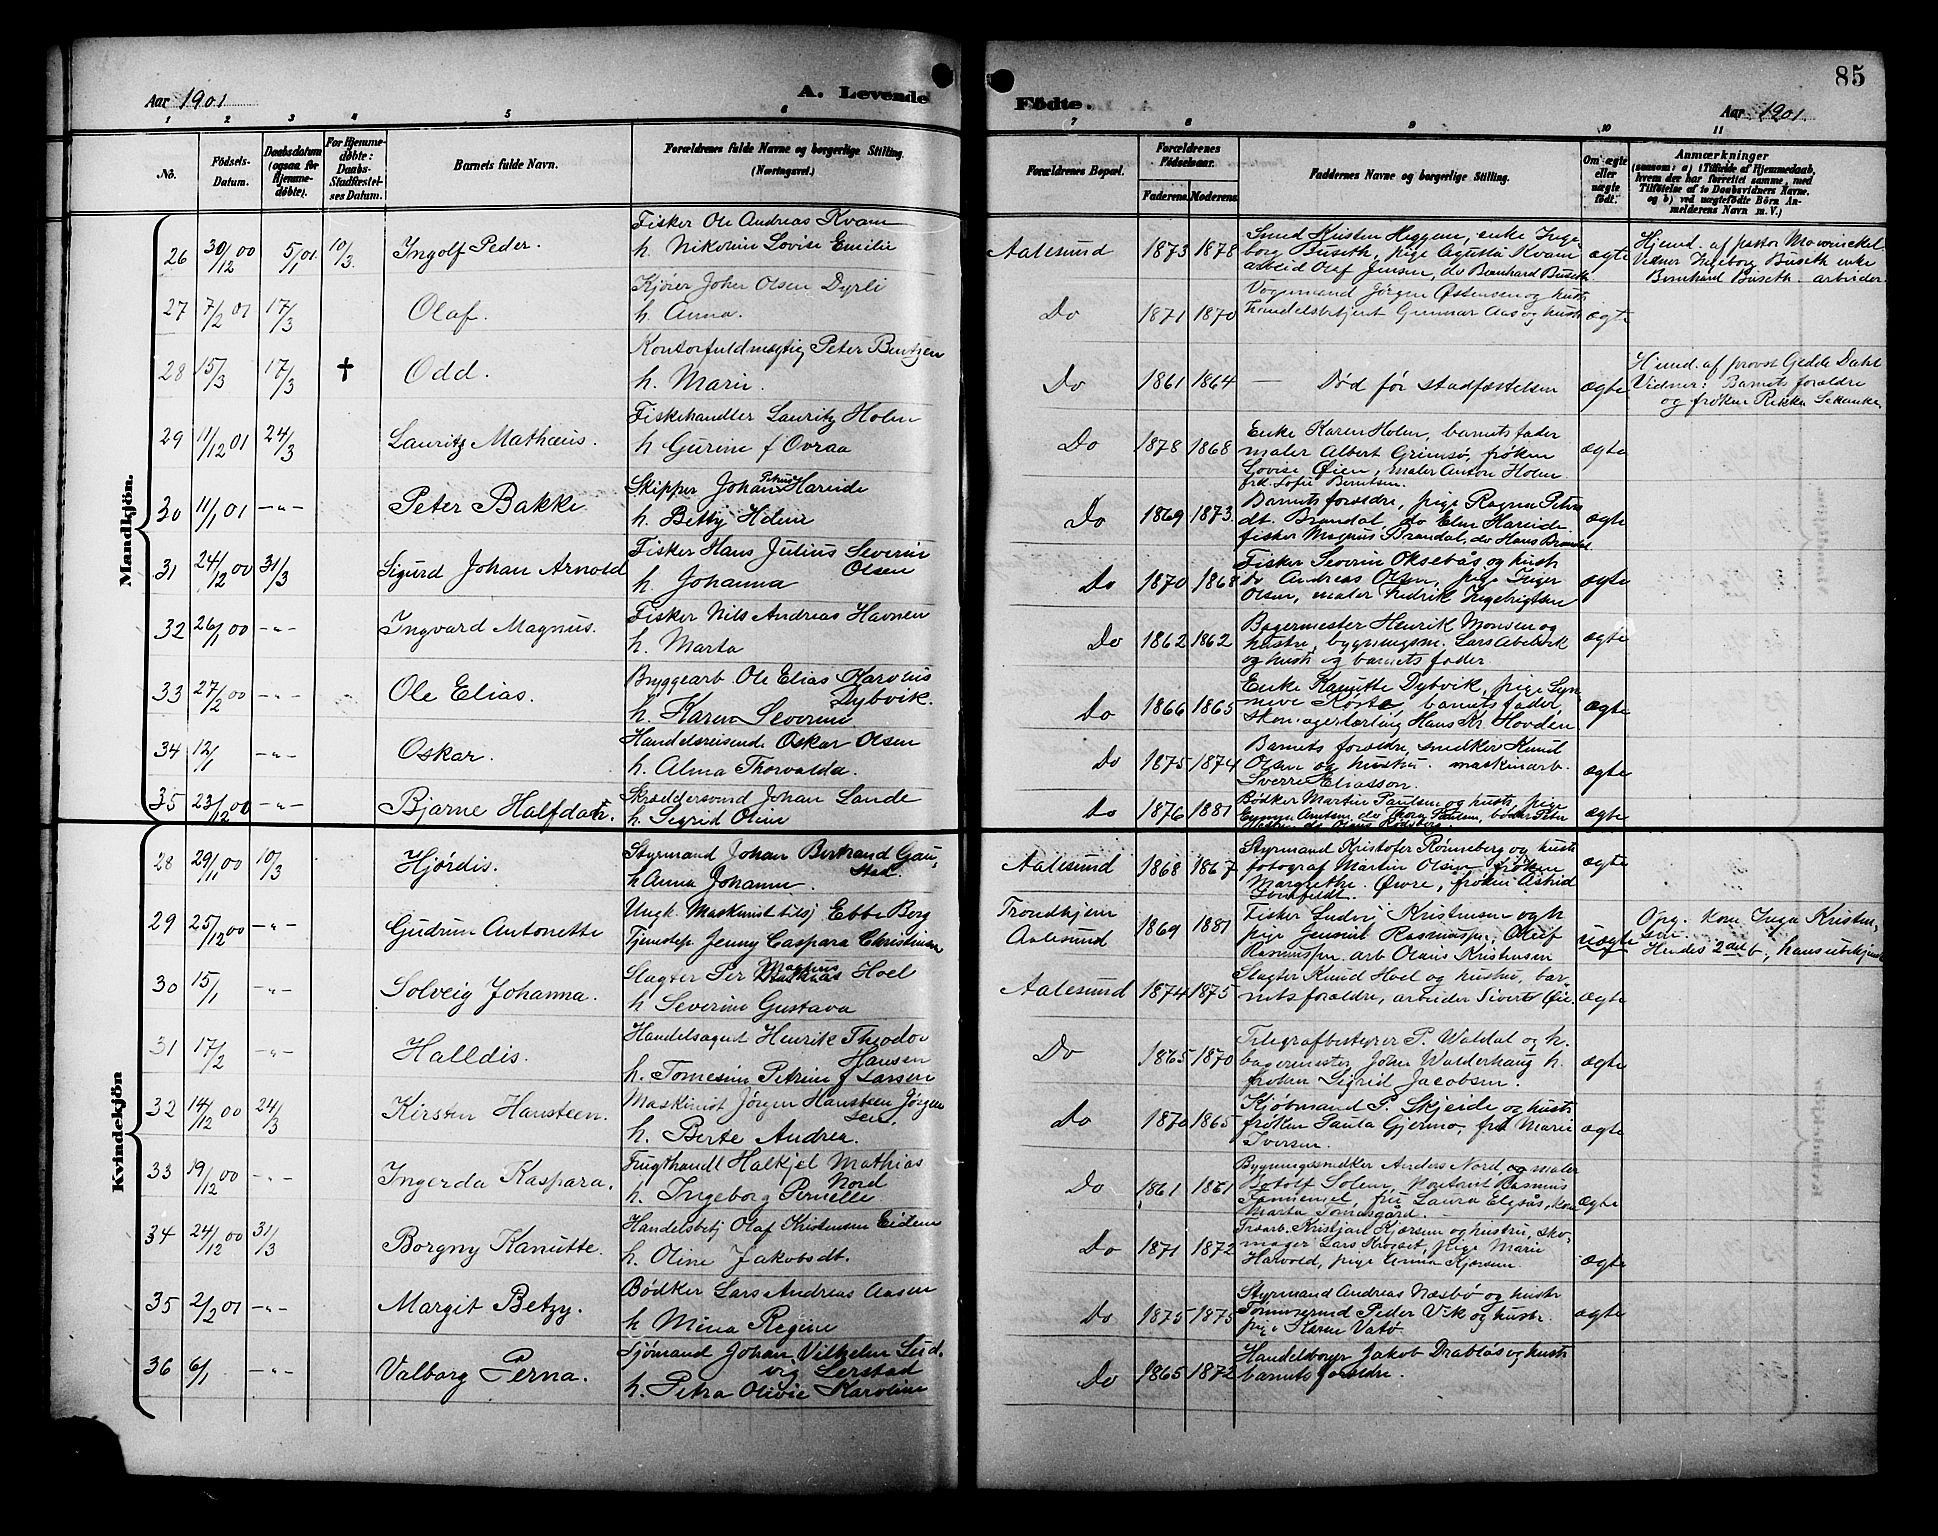 85
Aar 1901
A. Levende
Födte.
Aar 1901
1 2 3 4 5 6 7 8 9 10 11
No.
Födsels-
Datum.
Daabsdatum
(ogsaa for
Hjemme-
døbte).
For Hjemme-
døbte:
Daabs-
Stadfæstel-
ses Datum.
Barnets fulde Navn.
Forældrenes fulde Navne og borgerlige Stilling.
(Næringsvei.)
Forældrenes Bopæl.
Forældrenes
Födselsaar.
Faderens. Moderens.
Faddernes Navne og borgerlige Stilling.
Om ægte
eller
uægte
født.
Anmærkninger
(saasom: a) i Tilfælde af Hjemmedaab,
hvem der har forrettet samme, med
Tilföielse af to Daabsvidners Navne,
og b) ved uægtefödte Börn An-
melderens Navn m. V.)
Mandkjön.
26 30/12 00 5/1 01 10/3 Ingolf Peder.
Fisker Ole Andreas Kvam
h. Nikoline Lovise Emilie
Aalesund 1873 1878
Smed Kristen Heggem, enke Inge-
borg Buseth, pige Agusta Kvam
arbeid Olaf Jensen, do Bernhard Buseth
ægte
Hjemd. af pastor Mowinckel
Vidner Ingeborg Buseth enke
Bernhard Buseth. arbeider.
27 7/2 01 17/3 Olaf.
Kjører Johan Olsen Dyrli
h. Anna.
Do 1871 1870
Vognmand Jørgen Østensen og hust
Handelsbetjent Gunnar Aas og hustr
ægte
28 15/3 17/3 † Odd.
Kontorfuldmægtig Peter Bentzen
h. Marie.
Do 1861 1864
— Død før stadfæstelsen
ægte
Hjemd. af provst Gedde Dahl
Vidner: Barnets forældre
og frøken Rikka
29 11/12 01 24/3 Lauritz Mathæus.
Fiskehandler Lauritz Holm
h Gurine f Ovraa
Do 1878 1868
Enke Karen Holm, barnets fader
maler Albert Grimsø, frøken
Lovise Øien, maler Anton Holm
frk. Sofie Berntsen.
ægte
30 11/1 01 -"- Peter Bakke
Skipper Johan Petrus Hareide
h. Betty Helene
Do 1869 1873.
Barnets forældre, pige Ragna Peters
dt. Brandal, do Elen Hareide
fisker Magnus Brandal, do Hans Brandal
ægte
31 24/12 00 31/3 Sigurd Johan Arnold
Fisker Hans Julius Severin
Olsen
h. Johanna
Do 1870 1868
Fisker Severin Oksebås og hustr
do Andreas Olsen, pige Inger
Olsen, maler Fredrik Ingebrigtsen
ægte
32 26/1 00 -"- Ingvard Magnus.
Fisker Nils Andreas Havnen
h. Marta
Do 1862 1862
Bagermester Henrik Monsen og
hustru, bygningsm. Lars Abelseth
og hustr og barnets fader
ægte
33 27/2 00 -"- Ole Elias.
Bryggearb Ole Elias Karolius
Dybvik.
h. Karen Severine
Do 1866 1865
Enke Kanutte Dybvik, pige Syn-
neve Røste, barnets fader,
Skomagerlærling Hans Kr. Hovden
ægte
34 12/1 -"- Oskar.
Handelsreisende Oskar Olsen
h. Alma Thorvalda.
Do 1875 1874
Barnets forældre, snedker Knud
Olsen og hustru. maskinarb.
Sverre Eliasson.
ægte
35 23/12 00 -"- Bjarne Halfdan.
Skræddersvend Johan Sande
h. Sigrid Oline
Do 1876 1881
Bødker Martin Paulsen og hustr, pige
Emma Arntsen, do Thora Paulsen, bødker Peter
ægte
Kvindekjön
28 29/1 00 10/3 Hjørdis.
Styrmand Johan Bertrand Gau-
stad.
h Anna Johanne.
Aalesund 1868 1867
Styrmand Kristofer Rønneberg og hust
fotograf Martin Olsen, frøken
Margrethe Øvre, frøken Astrid
ægte
29 25/12 00 -"- Gudrun Antonette
Ungk. Maskinist tilsj Ebbe Berg
Tjenstep Jenny Caspara Christensen
Trondhjem
Aalesund 1869 1881
Fisker Ludv. Kristensen og h
pige Jensine Rasmussen, Oluf
Rasmussen. arb Olaus Kristensen
uægte
Opg. kone Inga Kristen-
sen.
Hendes 2det b., hans ubekjendt
30 15/1 -"- Solveig Johanna.
Slagter Per Magnus Hoel
h Severine Gustava
Aalesund 1874 1875
Slagter Knud Hoel og hustru, bar-
nets forældre, arbeider Sivert Øie
ægte
31 17/2 -"- Halldis.
Handelsagent Henrik Theodor
Hansen
h. Tomesine Petrine f Larsen
Do 1865 1870
Telegrafbestyrer P. Waldal og h.
bagermester Johan Walderhaug h.
frøken Sigrid Jacobsen.
ægte
32 14/12 00 24/3 Kirsten Hansteen.
Maskinist Jørgen Hansteen Jørgen
sen.
h. Berte Andrea.
Do 1870 1865
Kjøbmand P. Skjeide og hustr
frøken Paula Gjermo, frk Marie
Iversen.
ægte
33 19/12 00 -"- Ingerda Kaspara.
Frugthandl Halkjel Mathias
Nord
h. Ingeborg Pernelle
Do 1861 1861
Bygningssnedker Anders Nord, og maler
Botolf Solem, kontorist Rasmus
fru Laura Elgsås, kone
Marta Tomasgård.
ægte
34 24/12 00 31/3 Borgny Kanutte.
Handelsbetj Olaf Kristensen Eidem
h. Oline Jakobsdt.
Do 1871 1872
Træarb. Kristjan Kjersem og hustru, sko-
mager Lars Krogset, pige Marie
Harvold, pige Anna Kjersem
ægte
35 2/2 01 -"- Margit Betzy.
Bødker Lars Andreas Aasen
h Mina Regine
Do 1875 1875
Styrmand Andreas Næsbø og hustr
Tømmermd Peder Vik og hustr.
pige Karen Vatø
ægte
36 6/1 -"- Valborg Perna.
Sjømand Johan Vilhelm Lud-
vig Lerstad
h. Petra Olivie Karoline
Do 1865 1872
Handelsborger Jakob Drabløs og hustr
barnets forældre.